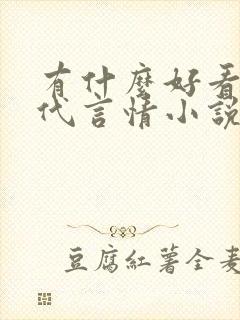 有什麼好看
代言情小說
豆腐紅薯全麦